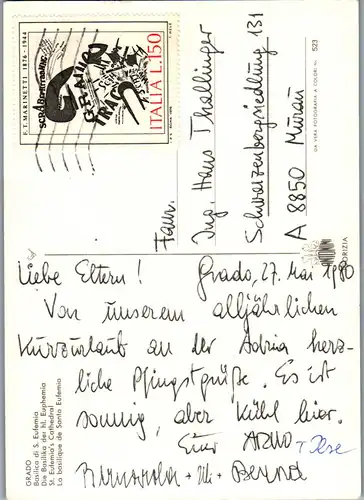 F.T. MARINETTI 1876-1944
ITALIA L.150
Fam.
Ing. Hans Thallinger
Schwarzenbergsiedlung 131
A 8850 Murau
523
DA VERA FOTOGRAFIA A COLORI N.
Liebe Eltern! Grado, 27. Mai 1980
Von unserem alljährlichen
Kurzurlaub an der Adria herz-
liche Pfingstgrüße. Es ist
sonnig, aber kühl hier.
Euer ARNO
+ Uli + Bernd
GRADO
Basilica di S. Eufemia
Die Basilica der hl. Euphemia
St. Eufemia's Cathedral
La basilique de Santa Eufemia